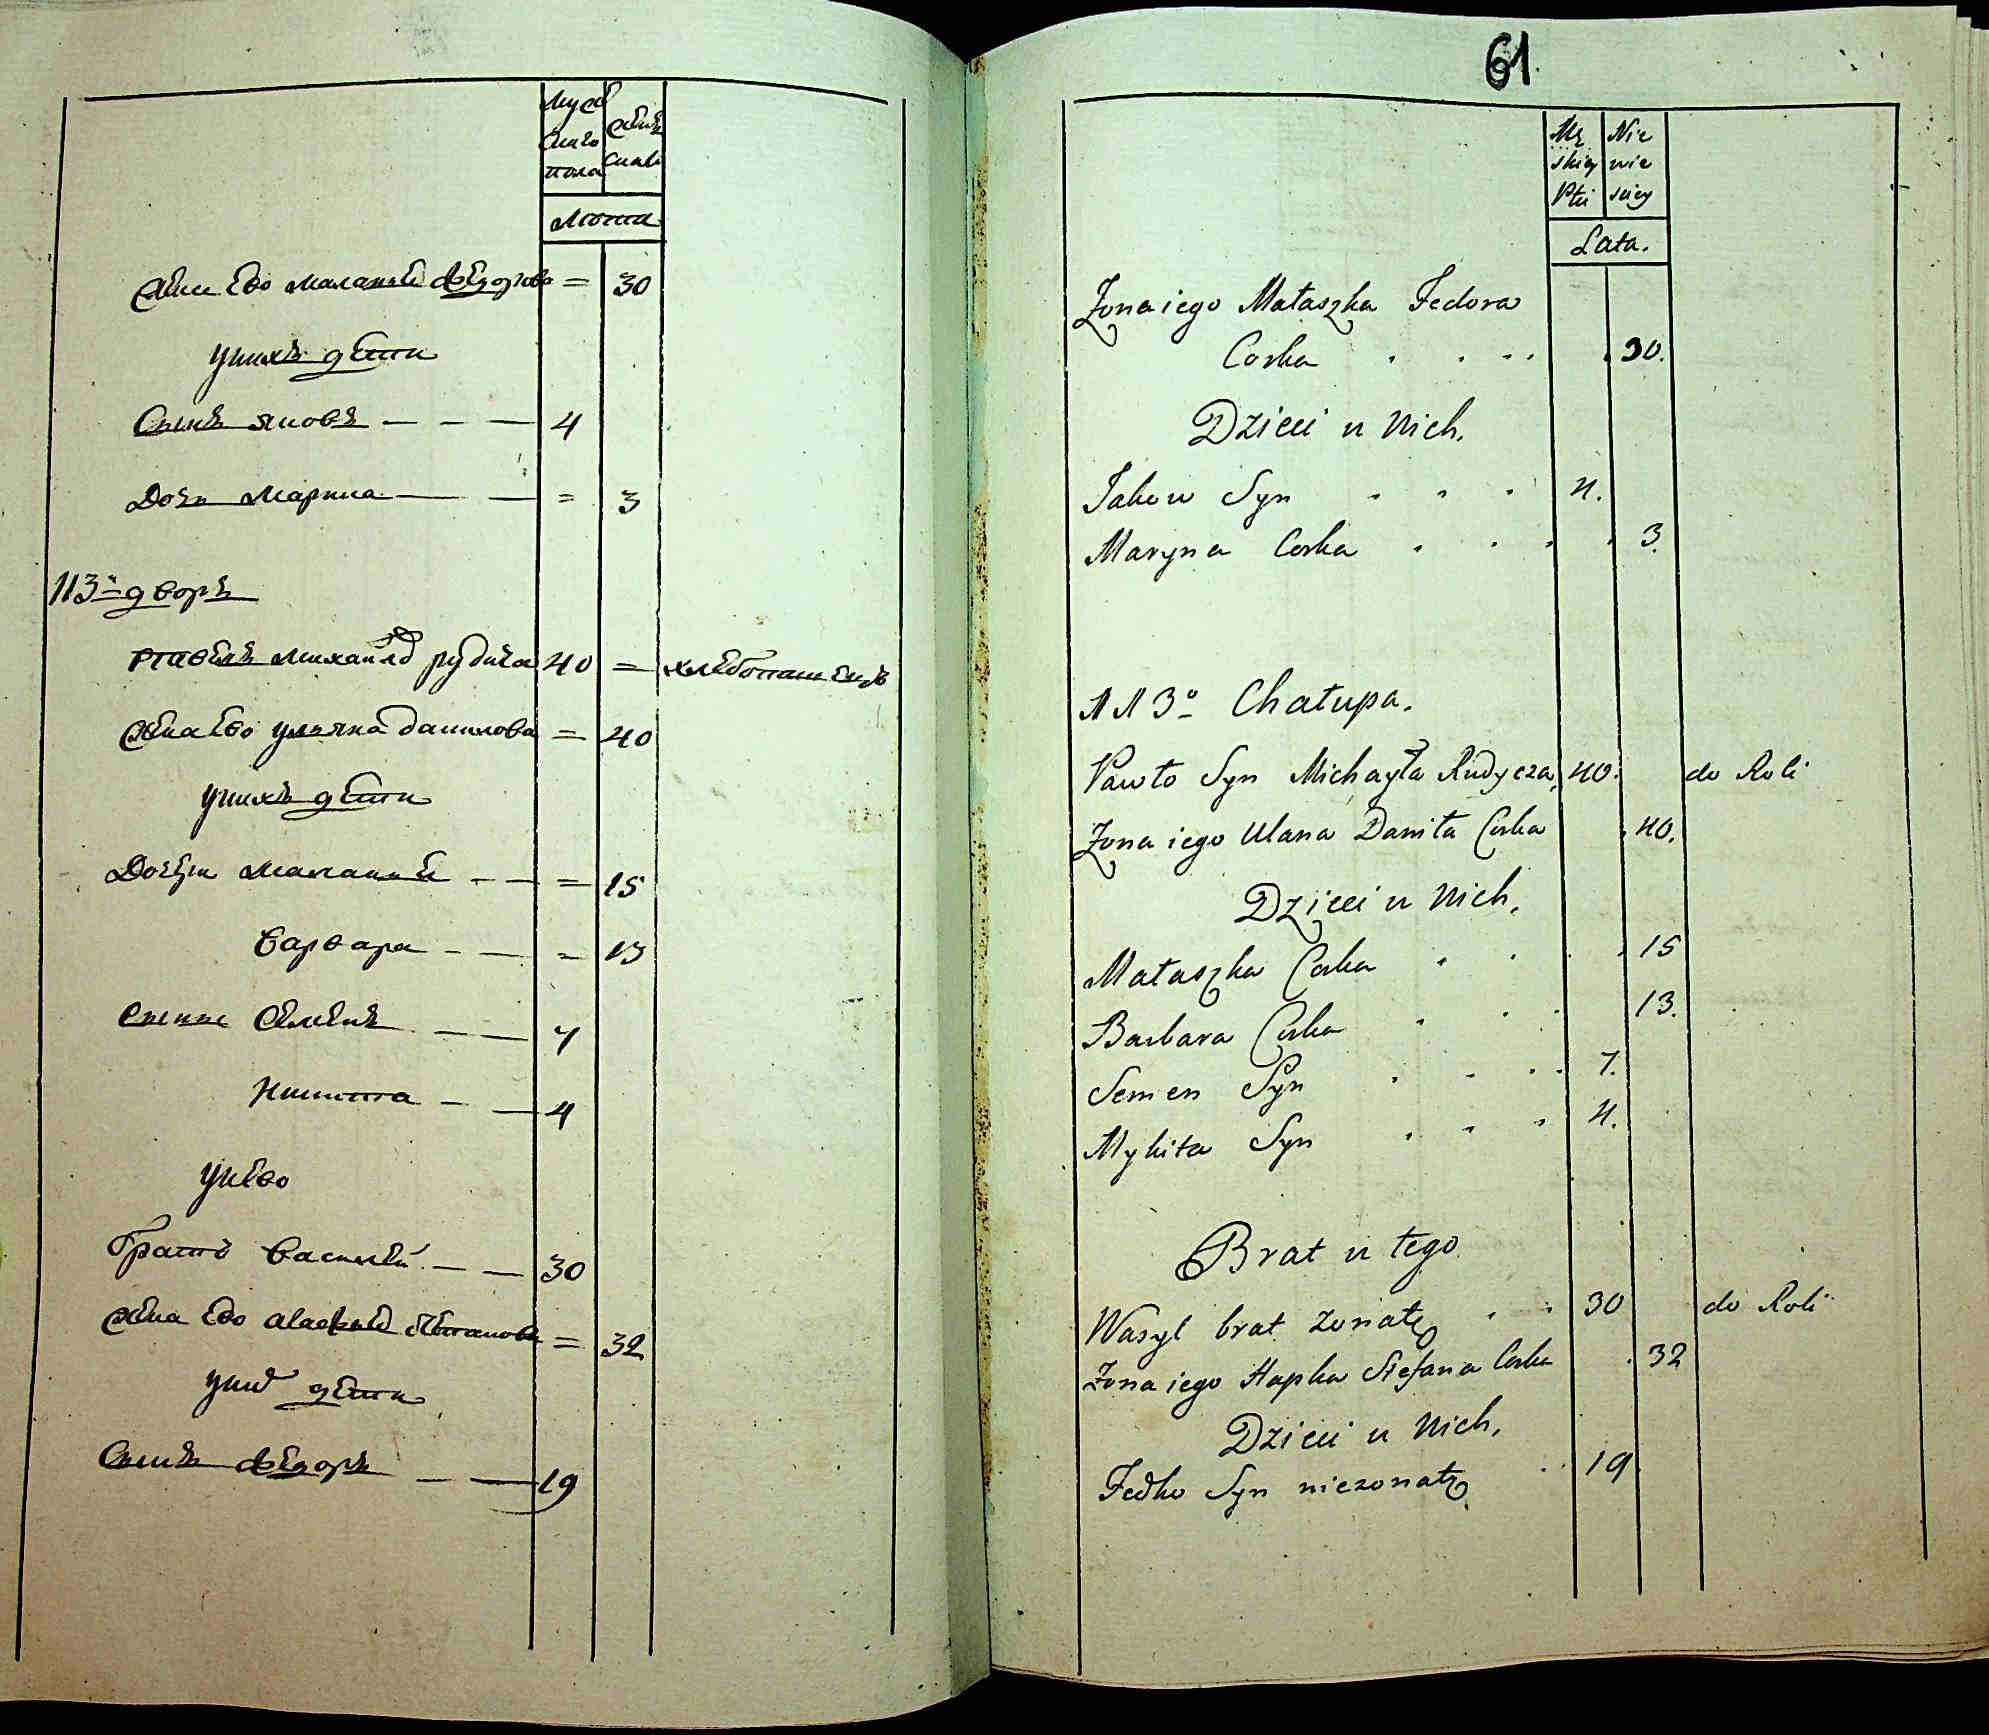 Мужескаго пола
женскаго
Лѣта
Жена Ево Маланья Федорова = 30
У нихъ дети
Сынъ Яковъ — — — 4
Дочь Марина — — = 3
113й дворъ
Павелъ Михайло Рудича 40 = хлебопашецъ
Жена Ево Ульяна Данилова = 40
У нихъ дети
Дочери Маланья — — = 15
Варвара — — = 13
Сыны Семенъ — — 7
Никита — — 4
У Нево
Братъ Василей — — 30
Жена Ево Агафья Степанова = 32
У них дети
Сынъ Федоръ — — 19
61
Mę skiey Płci
Nie wie sciey
Lata.
Zona iego Małaszka Fedora
Corka . . . . . 30.
Dzieci u Nich.
Jakow Syn . . . 4.
Maryna Corka . . . . 3.
113o Chałupa.
Pawło Syn Michayła Rudycza 40. do Roli
Zona iego Ulana Daniła Corka . 40.
Dzieci u Nich.
Małaszka Corka . . . . 15
Barbara Corka . . . 13.
Semen Syn . . . . 7.
Mykita Syn . . . 4.
Brat u tego
Wasyl brat żonatę . . 30 do Roli
Zona iego Hapka Stefana Corka . 32
Dzieci u Nich.
Fedko Syn nieżonatę . . 19